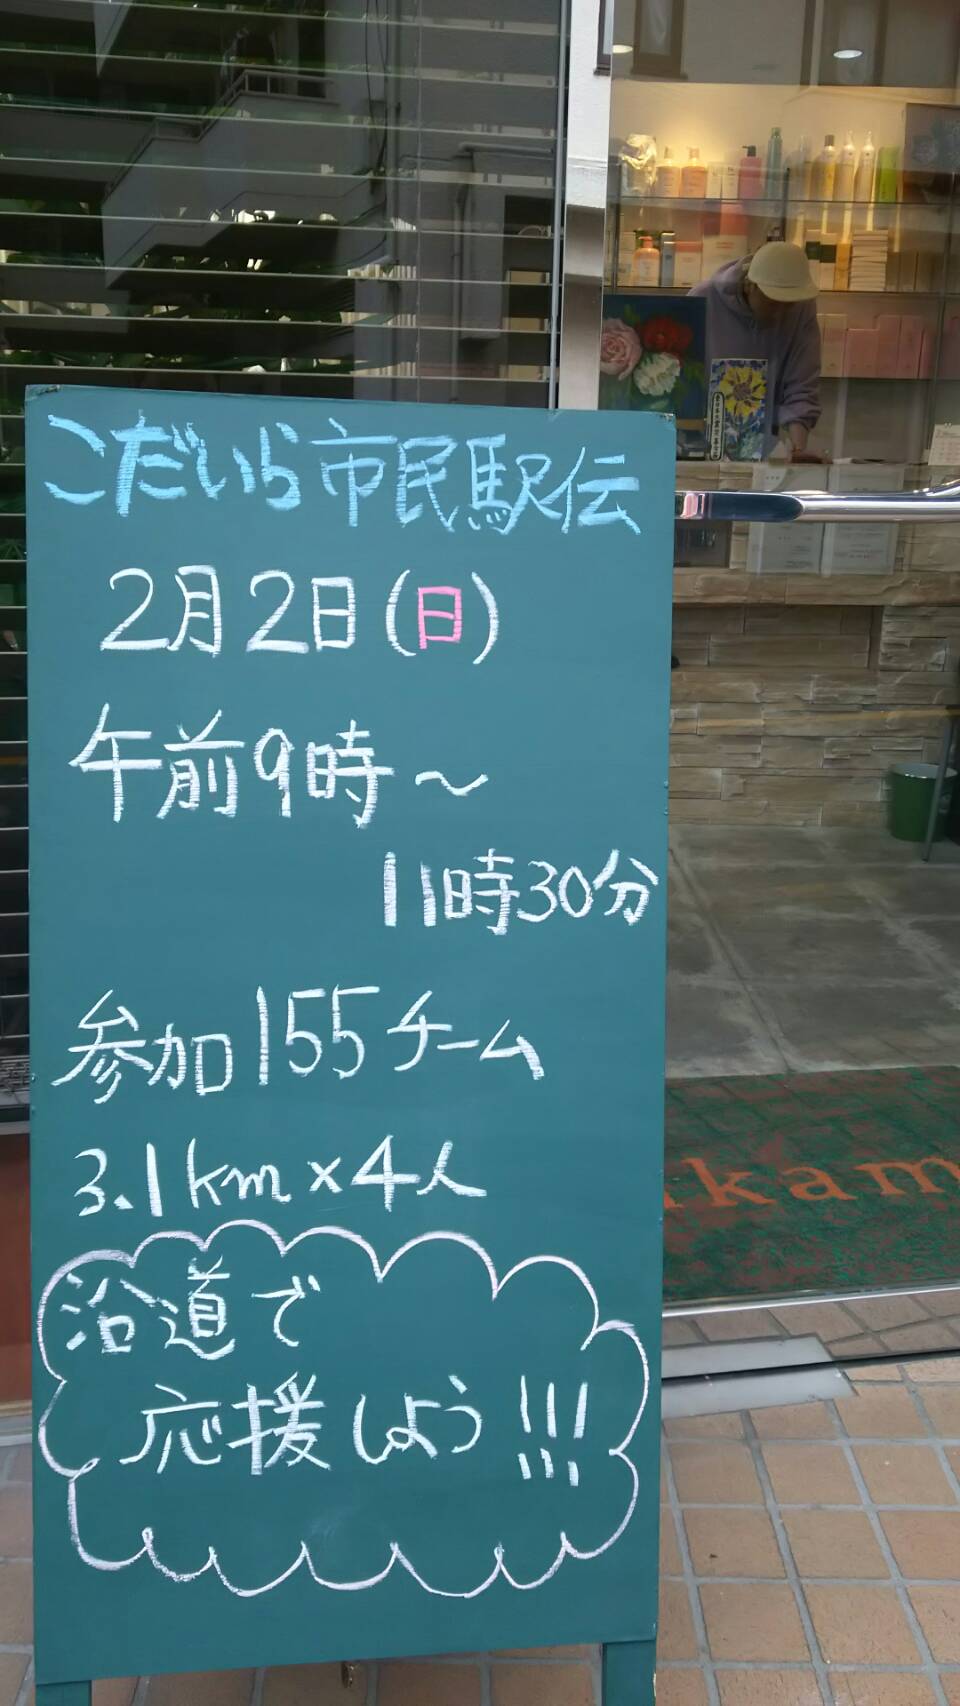 こだいら市民駅伝
2月2日(日)
午前9時〜
11時30分
参加155チーム
3.1km×4人
沿道で
応援しよう!!!
kam